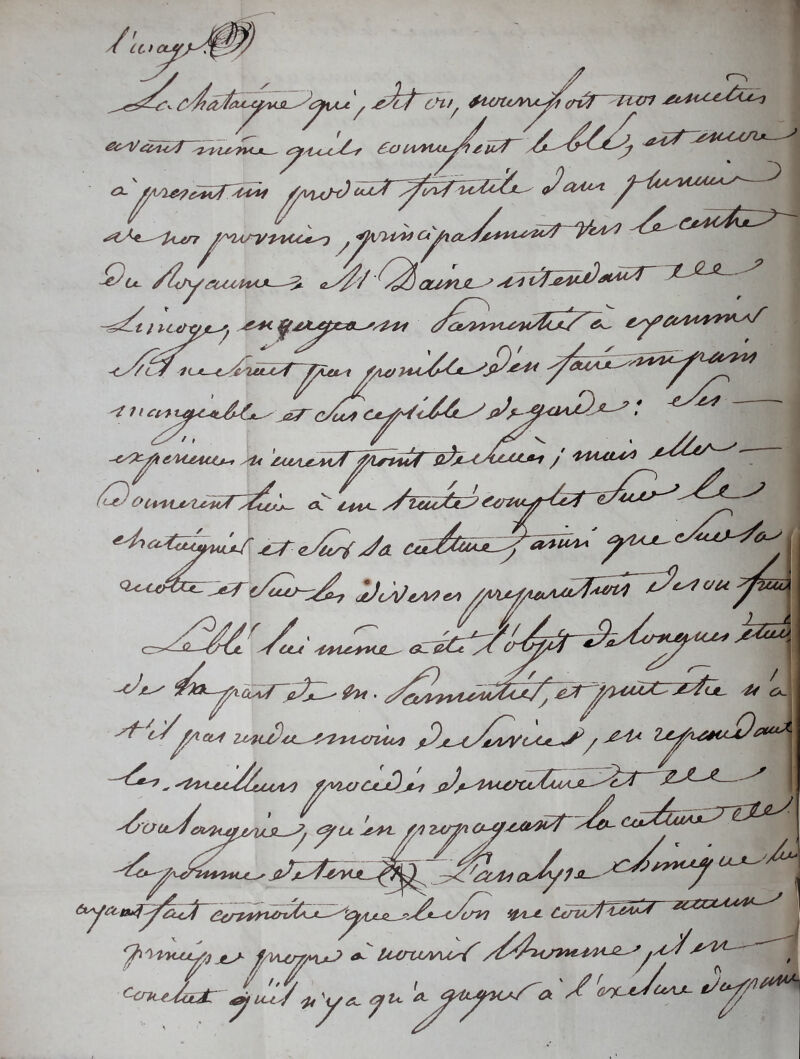 l'usage.
La chataigne qui, dit on, nourrissoit nos ancêtres
avant même quils connussent le blé, est encore
à present un produit fort utile dans plusieurs
de nos provinces, principalement vers le centre
du Royaume. M Daine intendant de
Limoges, engagea m Parmentier à examiner
s'il ne serait pas possible d'en faire un pain
mangeable et susceptible de garde : Ses
expériences n'eurent point de succès ; mais elles
donnerent lieu à un traité complet sur le
chataignier et sur sa culture, ainsi que sur la
recolte et sur les diverses preparations de son fruit
Le blé lui même a été l'objet de longues étud
de la part de m. Parmentier, et peut être n'a
t'il pas rendu moins de services, en repandant
les meilleurs procédés de mouture et de
boulangerie, qu'en propageant la culture de
la pomme de terre L'analyse chimique lui
ayant fait connoitre que le son ne contient aucun
principe propre à nourrir l'homme, il en
conclut qu'il n'y a qu'à gagner à l'exclure du pain